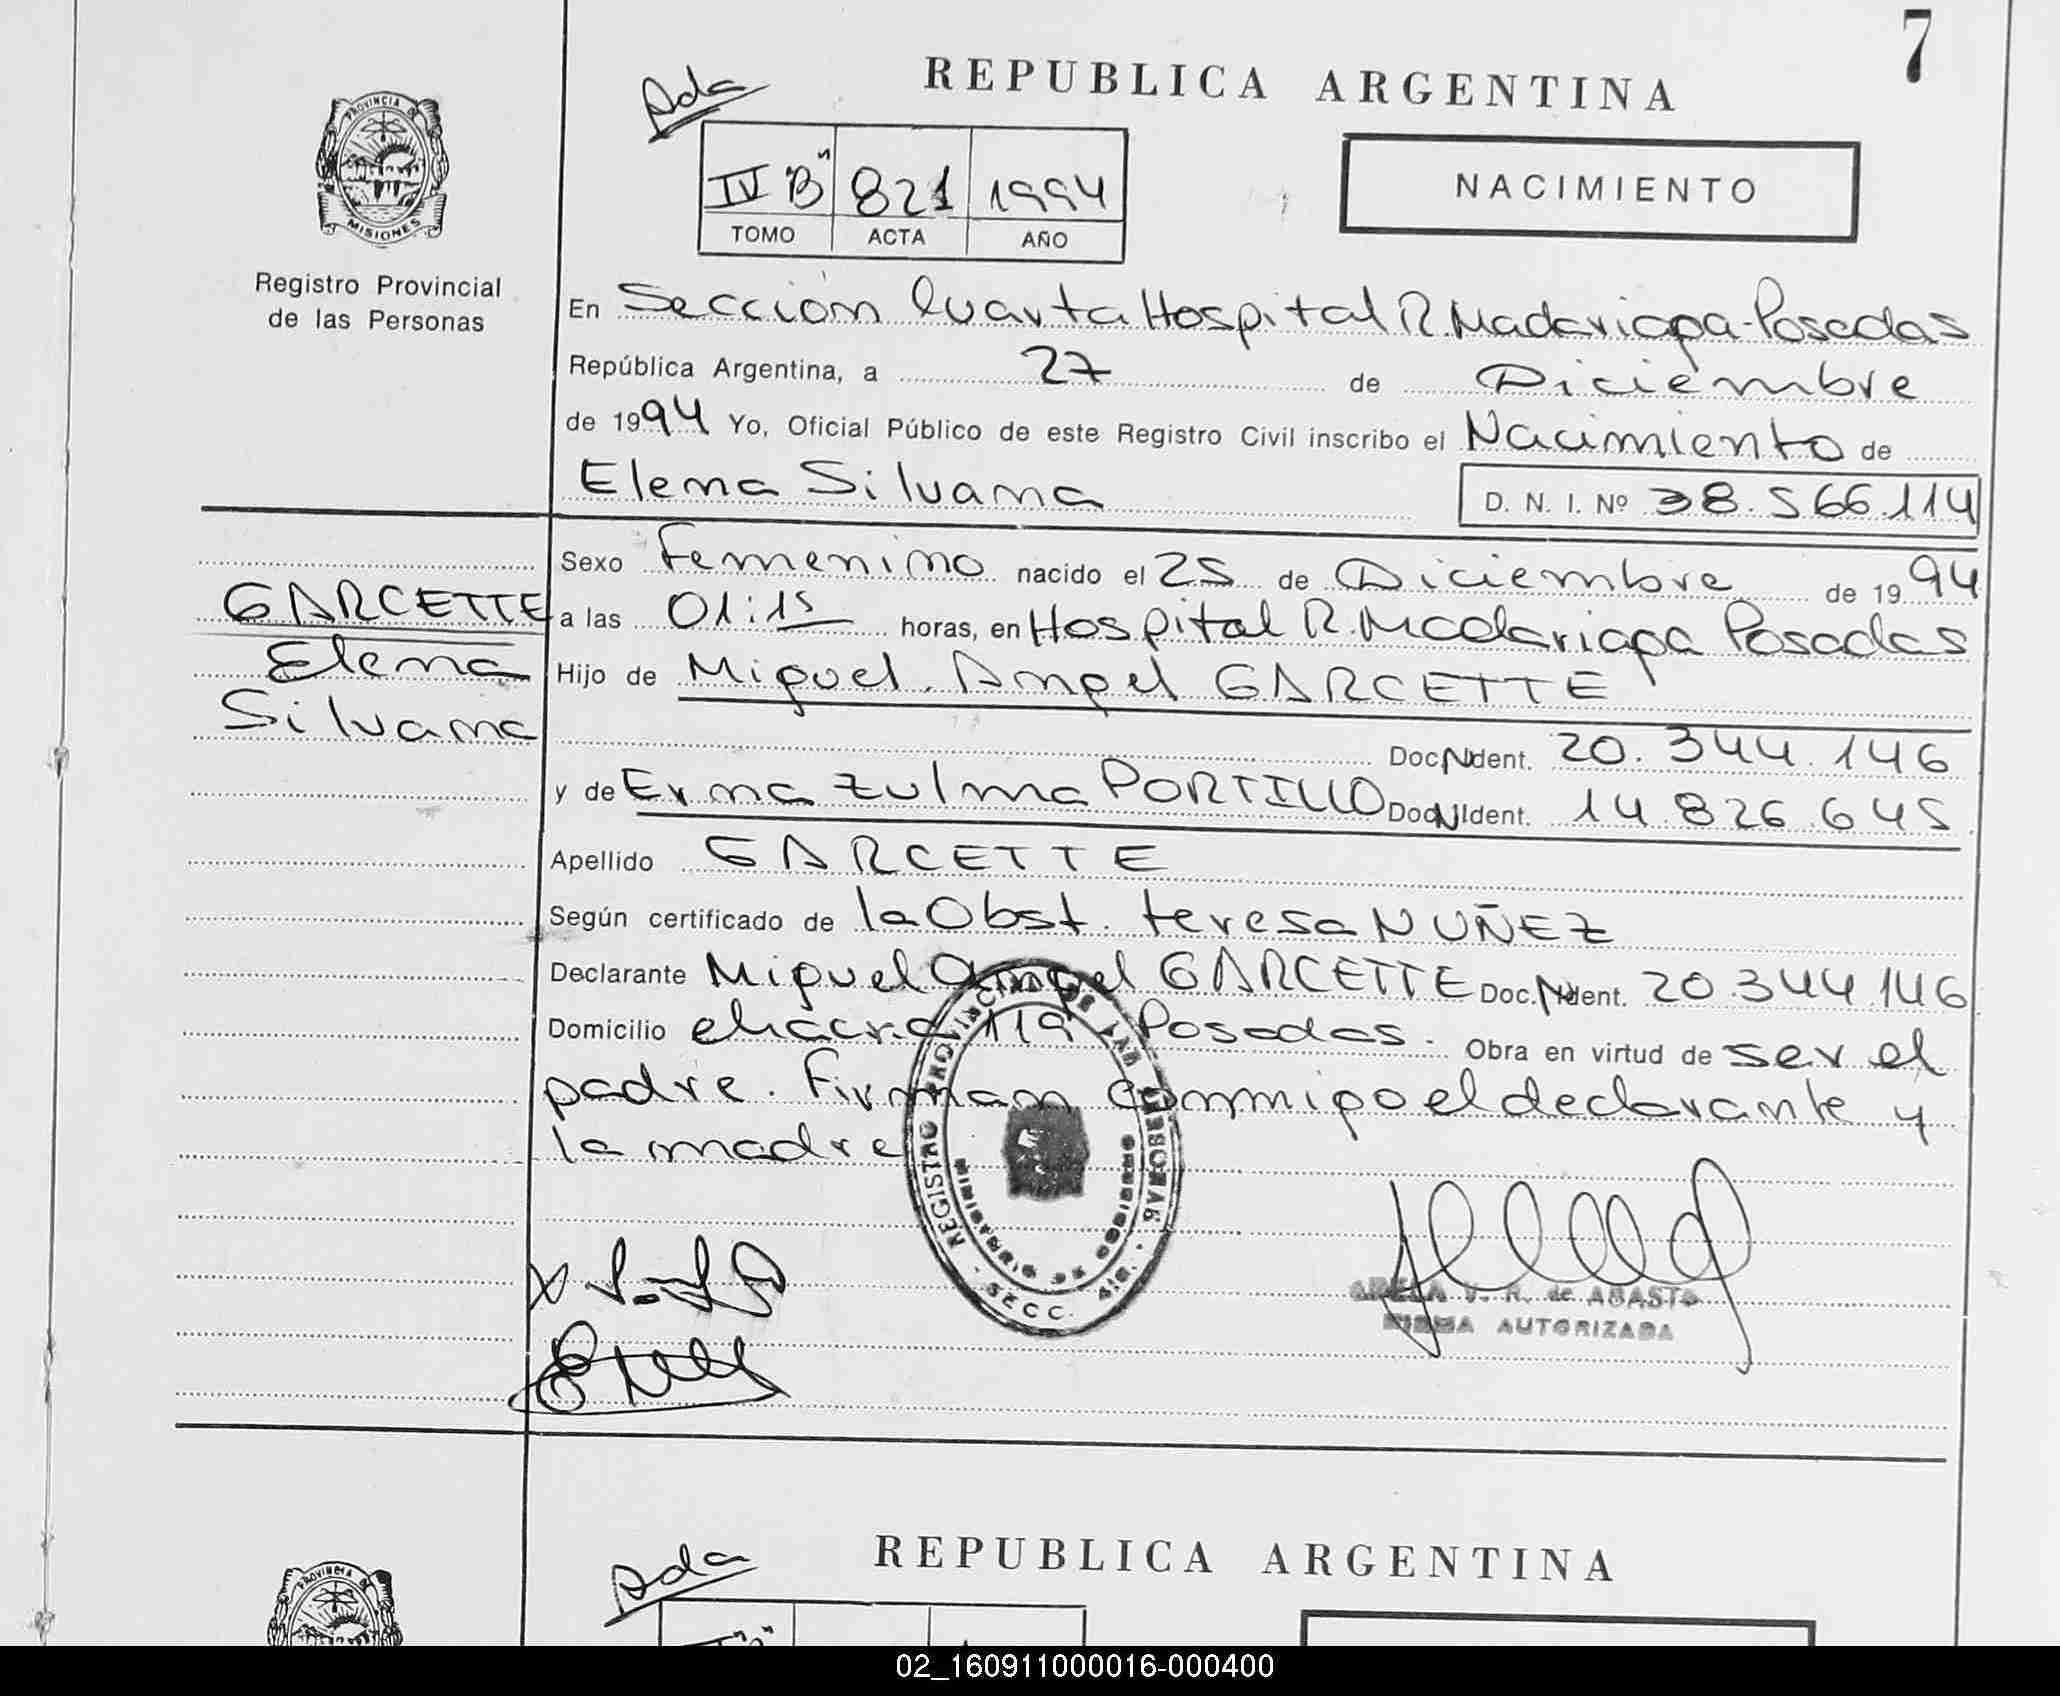 7
REPUBLICA ARGENTINA
Ada
PROVINCIA DE
MISIONES
IV "B" 821 1994
TOMO ACTA AÑO
NACIMIENTO
Registro Provincial
de las Personas
En Sección Cuarta Hospital R. Madariaga - Posadas
República Argentina, a 27 de Diciembre
de 1994 Yo, Oficial Público de este Registro Civil inscribo el Nacimiento de
Elena Silvana
D. N. I. Nº 38.566.114
GARCETTE
Elena
Silvana
Sexo Femenino nacido el 25 de Diciembre de 1994
a las 01:15 horas, en Hospital R. Madariaga Posadas
Hijo de Miguel Angel GARCETTE
Doc. N Ident. 20.344.146
y de Erma Zulma PORTILLO Doc. N Ident. 14.826.645
Apellido GARCETTE
Según certificado de la Obst. Teresa NUÑEZ
Declarante Miguel Angel GARCETTE Doc. N Ident. 20.344.146
Domicilio chacra 119 Posadas. Obra en virtud de ser el
padre. Firman conmigo el declarante y
la madre
REGISTRO PROVINCIAL DE LAS PERSONAS
MINISTERIO DE GOBIERNO
SECC. 4ta.
ADELA V. R. de ABASTO
FIRMA AUTORIZADA
Ada
REPUBLICA ARGENTINA
PROVINCIA DE
02_160911000016-000400